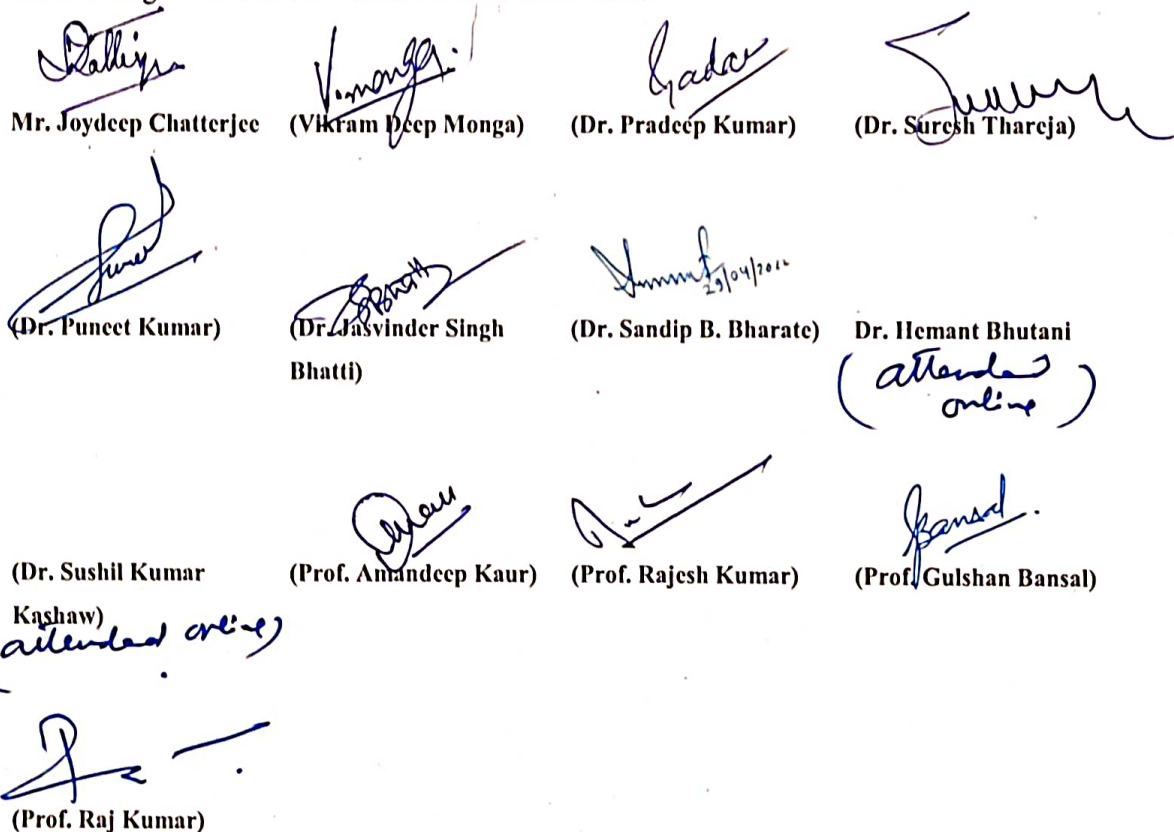 Mr. Joydeep Chatterjee (Vikram Deep Monga) (Dr. Pradeep Kumar) (Dr. Suresh Thareja)
V.monga
Yadav
Puneet
JSBhatti
29/04/2022
(Dr. Puneet Kumar) (Dr. Jasvinder Singh Bhatti) (Dr. Sandip B. Bharate) Dr. Hemant Bhutani
(attended
online)
Aman
GBansal
(Dr. Sushil Kumar Kashaw) (Prof. Amandeep Kaur) (Prof. Rajesh Kumar) (Prof. Gulshan Bansal)
attended online)
(Prof. Raj Kumar)